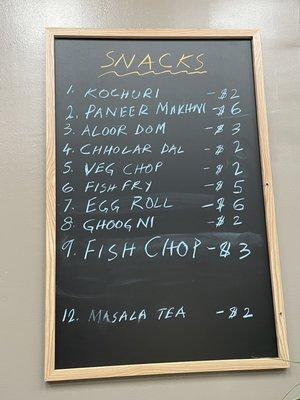 SNACKS
1. KOCHURI - $2
2. PANEER MAKHNI - $6
3. ALOOR DOM - $3
4. CHHOLAR DAL - $2
5. VEG CHOP - $2
6. FISH FRY - $5
7. EGG ROLL - $6
8. GHOOGNI - $2
9. FISH CHOP - $3
12. MASALA TEA - $2